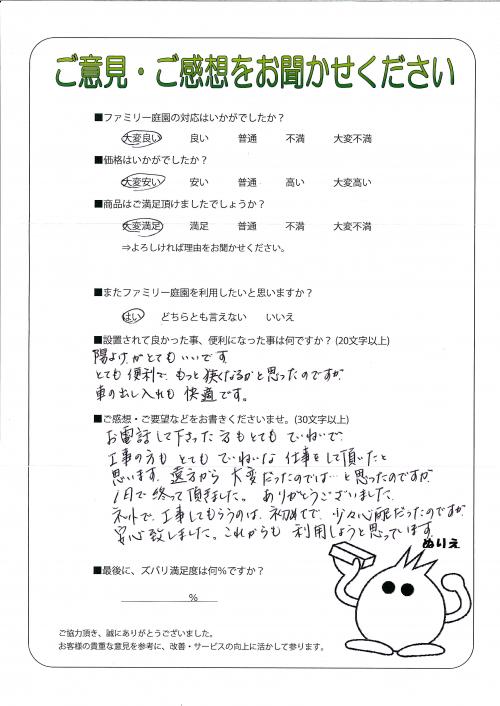 ご意見・ご感想をお聞かせください
■ファミリー庭園の対応はいかがでしたか？
大変良い 良い 普通 不満 大変不満
■価格はいかがでしたか？
大変安い 安い 普通 高い 大変高い
■商品はご満足頂けましたでしょうか？
大変満足 満足 普通 不満 大変不満
⇒よろしければ理由をお聞かせください。
■またファミリー庭園を利用したいと思いますか？
はい どちらとも言えない いいえ
■設置されて良かった事、便利になった事は何ですか？(20文字以上)
陽よけがとてもいいです
とても便利で、もっと狭くなるかと思ったのですが
車の出し入れも快適です。
■ご感想・ご要望などをお書きくださいませ。(30文字以上)
お電話して下さった方もとてもていねいで
工事の方もとてもていねいな仕事をして頂いたと
思います。遠方から大変だったのでは…と思ったのですが
1日で終って頂きました。ありがとうございました。
ネットで工事してもらうのは、初めてで、少々心配だったのですが
安心致しました。これからも利用しようと思っています。
ぬりえ
■最後に、ズバリ満足度は何％ですか？
％
ご協力頂き、誠にありがとうございました。
お客様の貴重な意見を参考に、改善・サービスの向上に活かして参ります。